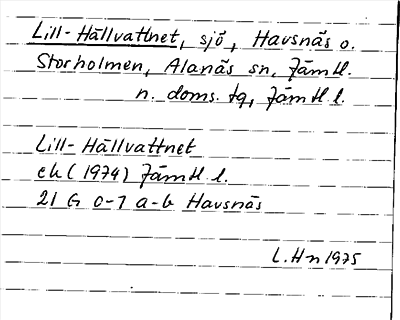 Lill-Hällvattnet, sjö, Havsnäs o.
Storholmen, Alanäs sn, Jämtl.
n. doms. tg, Jämtl l.
Lill-Hällvattnet
ek (1974) Jämtl l.
21 G 0-1 a-b Havsnäs
L. Hn 1975